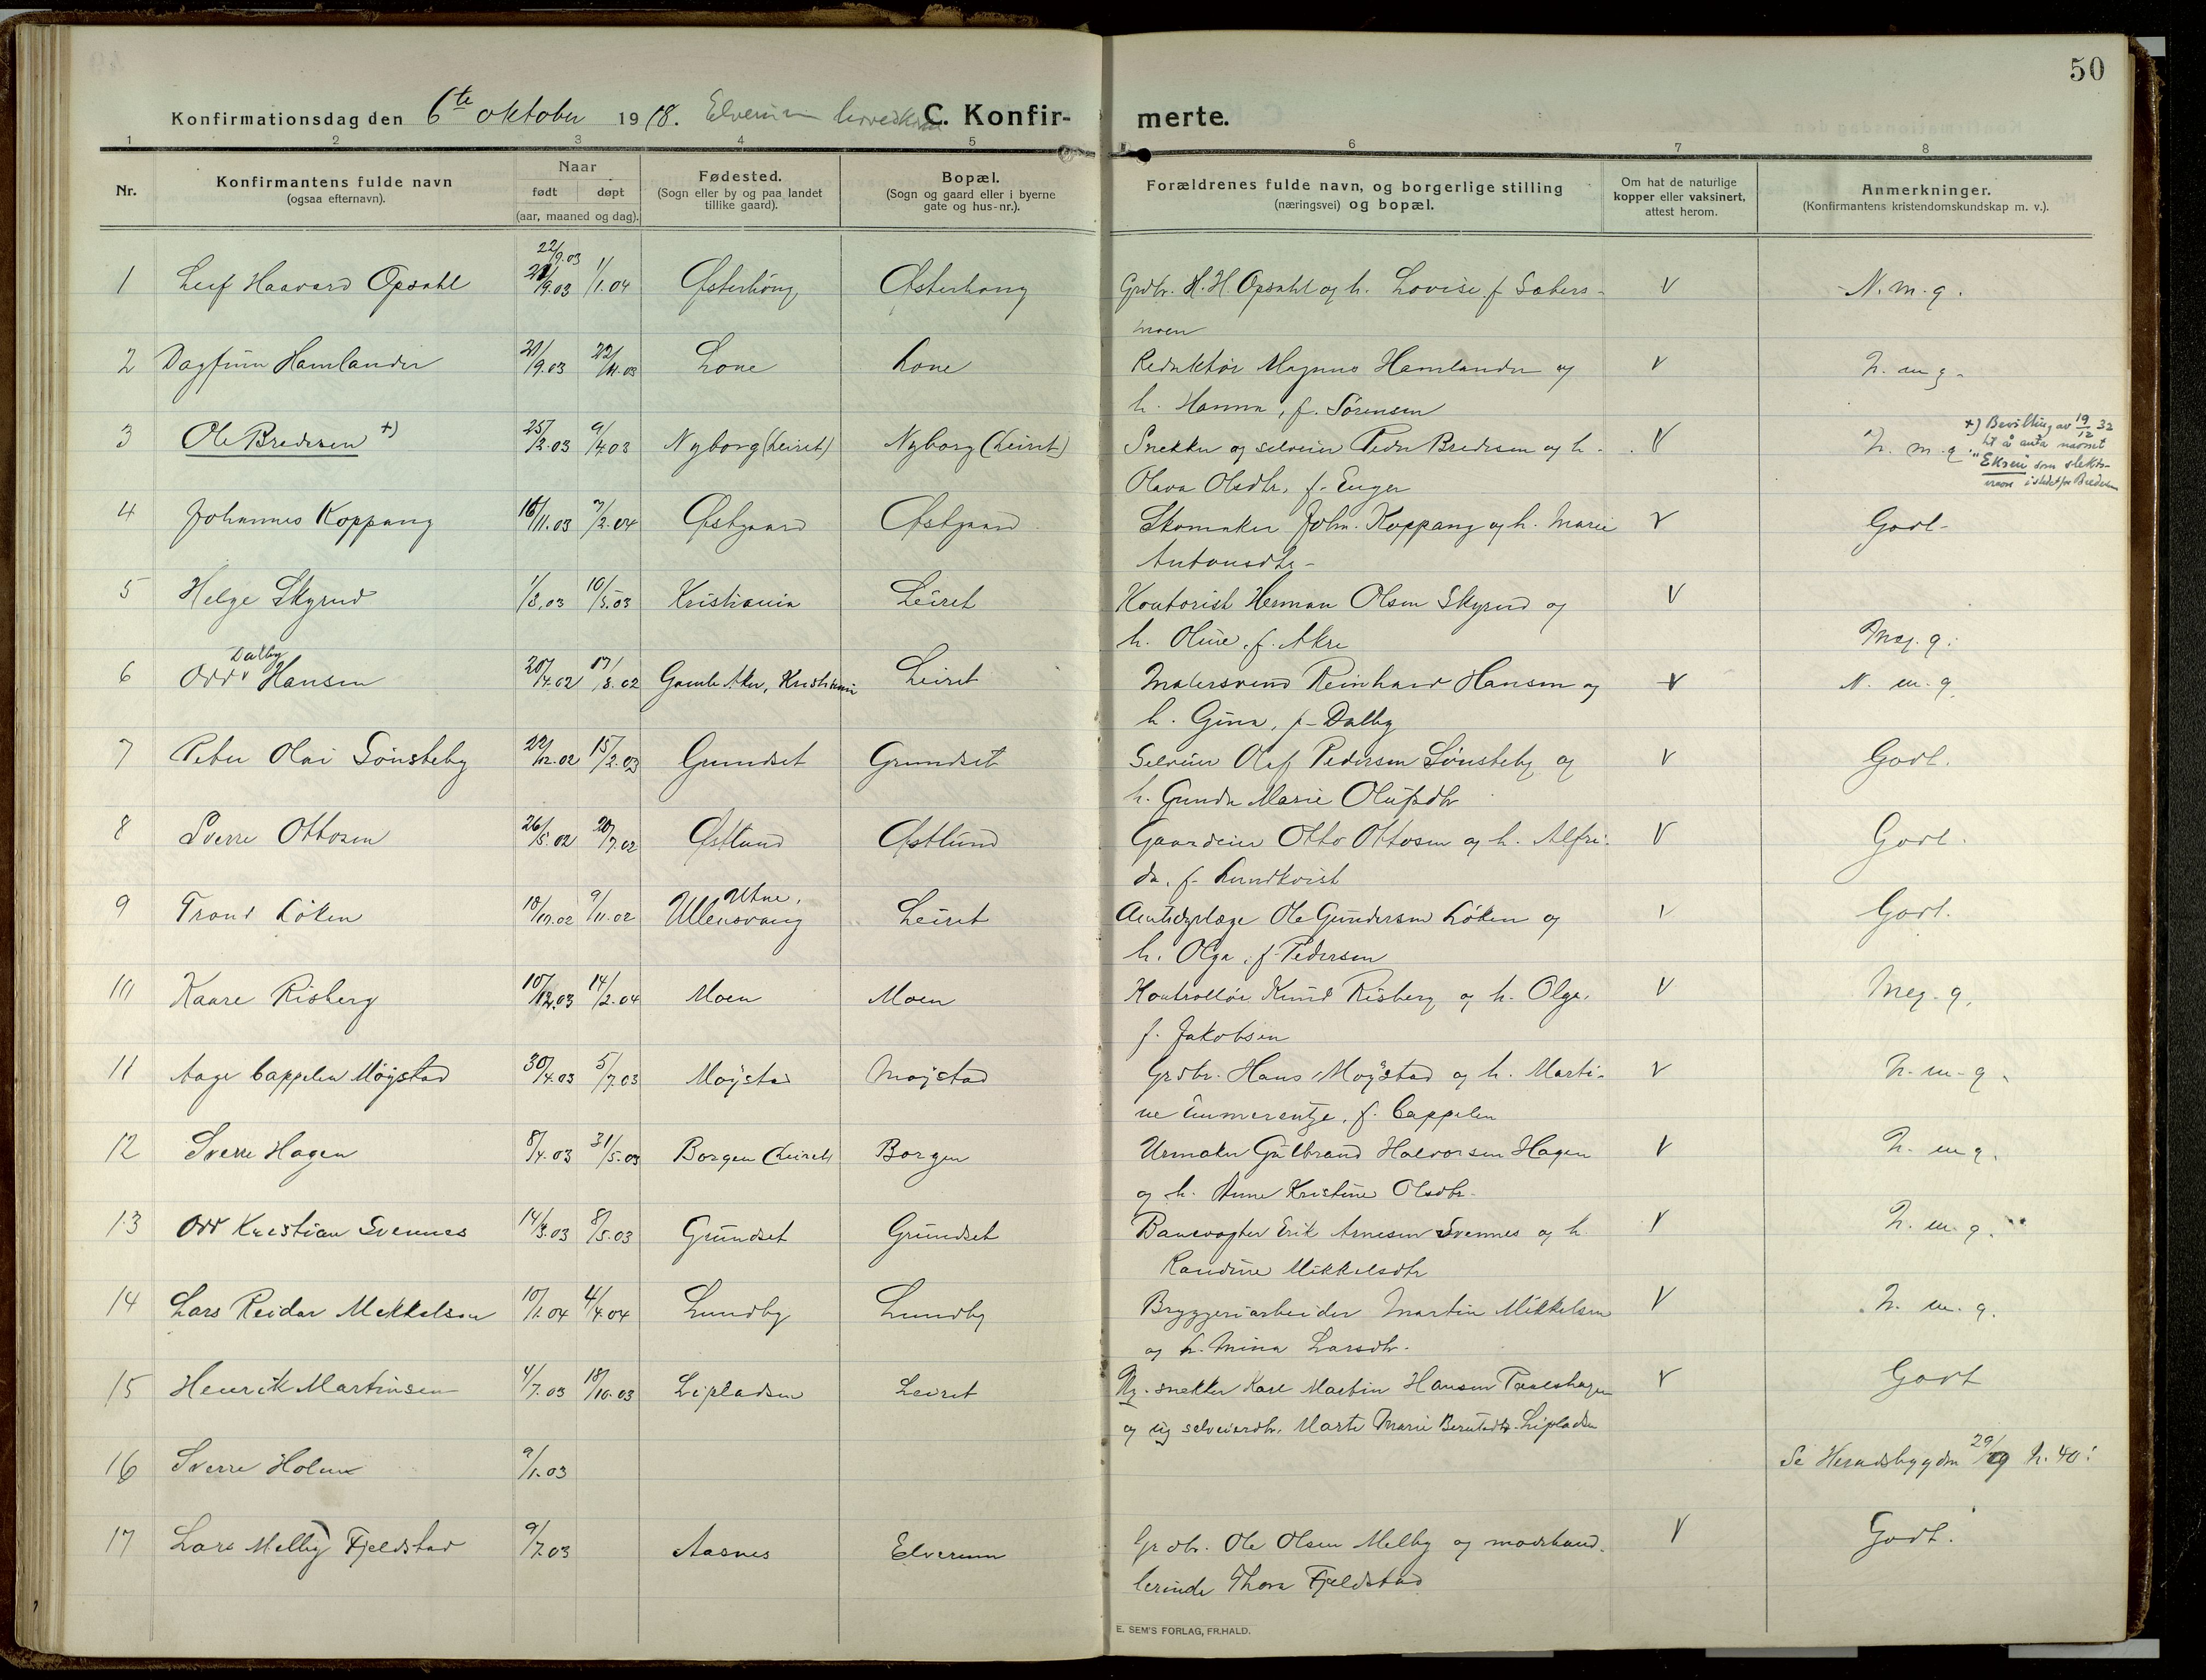 50
Konfirmationsdag den 6te oktober 1918. Elverum C. Konfir-merte.
1 2 3 4 5 6 7 8
Nr. Konfirmantens fulde navn (ogsaa efternavn). Naar født døpt (aar, maaned og dag). Fødested. (Sogn eller by og paa landet tillike gaard). Bopæl. (Sogn og gaard eller i byerne gate og hus-nr.). Forældrenes fulde navn, og borgerlige stilling (næringsvei) og bopæl. Om hat de naturlige kopper eller vaksinert, attest herom. Anmerkninger. (Konfirmantens kristendomskundskap m. v.).
22/9.03
1 Leif Haavard Opsahl 21/9.03 1/1.04 Østerhaug Østerhaug Grdbr. H. H. Opsahl og h. Lovise f. Sæters- V N. m. g.
moen
2 Dagfinn Hamlander 21/9.03 22/11.03 Lone Lone Redaktør Magnus Hamlander og V N. m g.
h. Hanna, f. Sørensen
3 Ole Bredesen +) 25/2.03 9/4.03 Nyborg (Leiret) Nyborg (Leiret) Snekker og selveier Peder Bredesen og h. V N. m. g. +) Bevilling av 19/12 32
til å anta navnet
"Ekren som slekts-
navn istedetfor Bredesen
Olava Olsdtr, f. Enger
4 Johannes Koppang 16/11.03 7/2.04 Østgaard Østgaard Skomaker Johan Koppang og h. Marie V Godt
Antonsdtr
5 Helge Skyrud 1/3.03 10/5.03 Kristiania Leiret Kontorist Herman Olsen Skyrud og V
h. Oline, f. Akre Meg. g.
Dalby
6 Odd Hansen 20/4.02 17/8.02 Gamle Aker, Kristiania Leiret Malersvend Reinhard Hansen og V N. m. g.
h. Gina, f. Dalby
7 Peter Olai Sönsteby 22/12.02 15/2.03 Grundset Grundset Selveier Olaf Pedersen Sönsteby og V Godt.
h. Gunda Marie Olufsdtr
8 Sverre Ottosen 26/5.02 20/7.02 Østlund Østlund Gaardeier Otto Ottosen og h. Alfri- V Godt.
da, f. Lundkvist
Utne,
9 Trond Löken 10/10.02 9/11.02 Ullensvang Leiret Amtsdyrlæge Ole Gundersen Löken og V Godt.
h. Olga, f. Pedersen
10 Kaare Risberg 10/12.03 14/2.04 Moen Moen Kontrollör Knud Risberg og h. Olga, V Meg. g.
f. Jakobsen
11 Aage Cappelen Möystad 30/4.03 5/7.03 Möystad Möystad Grdbr. Hans Möystad og h. Marti- V N. m. g.
ne Emmerentze, f. Cappelen
12 Sverre Hagen 8/4.03 31/5.03 Borgen (Leiret) Borgen Urmaker Gulbrand Halvorsen Hagen V N. m g.
og h. Anne Kristine Olsdtr.
13 Odd Kristian Svennes 14/3.03 8/5.03 Grundset Grundset Banevogter Erik Arnesen Svennes og h V N. m. g.
Randine Mikkelsdtr
14 Lars Reidar Mikkelsen 10/1.04 4/4.04 Lundby Lundby Bryggeriarbeider Martin Mikkelsen V N. m. g.
og h. Mina Larsdtr.
15 Henrik Martinsen 4/7.03 18/10.03 Lipladsen Leiret Ug. snekker Karl Martin Hansen V Godt
og ug selveierdtr. Marte Marie Lipladsen
16 Sverre Holm 9/1.03 Se Heradsbygden 29/9 N. 40!
17 Lars Melby Fjeldstad 9/7.03 Aasnes Elverum Grdbr. Ole Olsen Melby og modehand- V Godt.
lerinde Thora Fjeldstad
E. SEM'S FORLAG, FR.HALD.